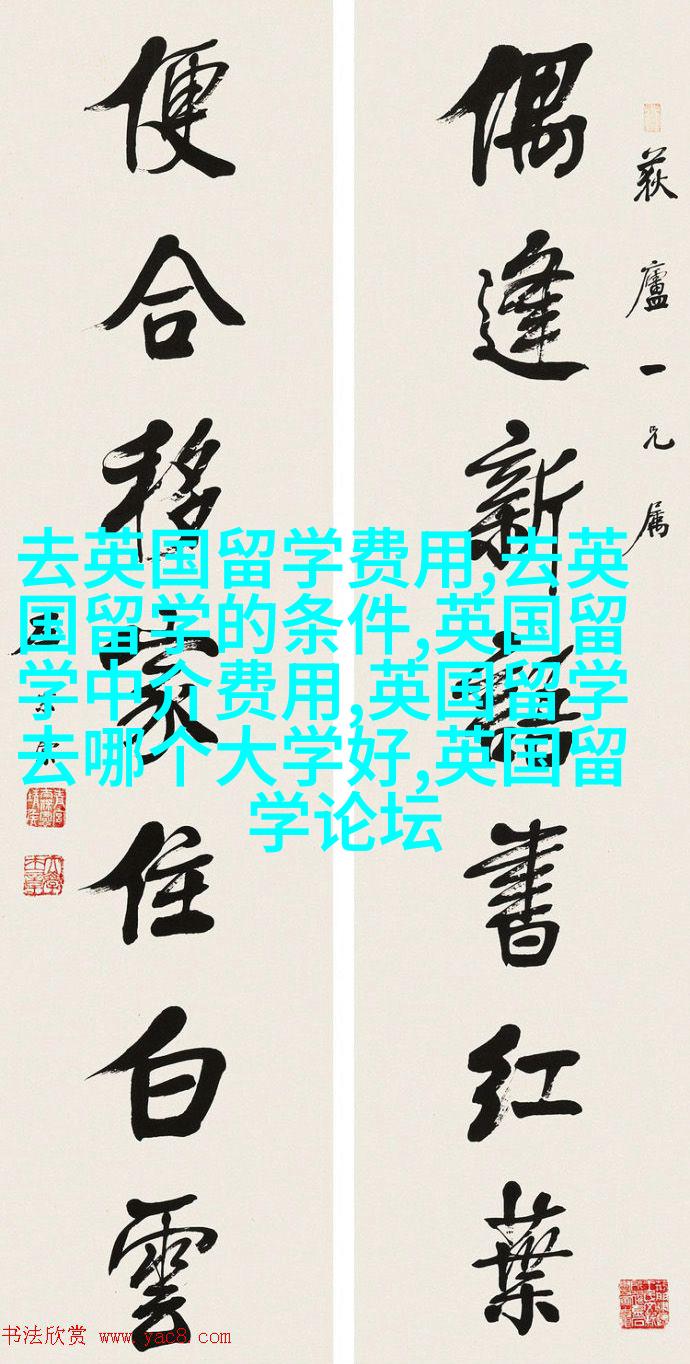 荻廬一兄属
偶逢新語書紅葉
便合移家住白雲
去英国留学费用,去英
国留学的条件,英国留
学中介费用,英国留学
去哪个大学好,英国留
学论坛
书法欣赏 www.yac8.com